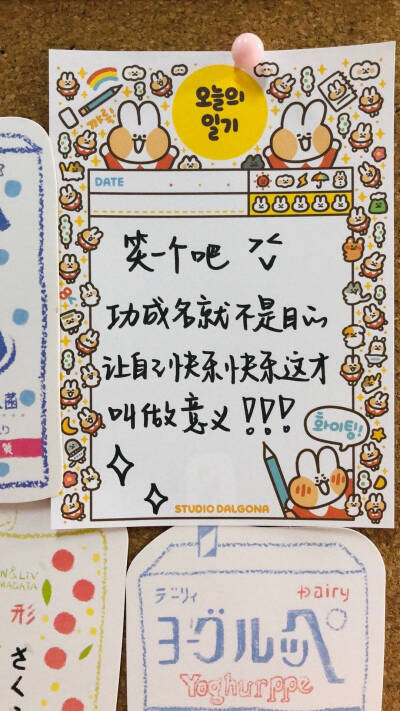 오늘의
일기
DATE
笑一个吧
功成名就不是目的
让自己快乐快乐这才
叫做意义!!!
화이팅!
STUDIO DALGONA
菌
り
N&LIV
MAGATA
形
さく
デーリィ
Dairy
ヨーグルッペ
Yoghurppe